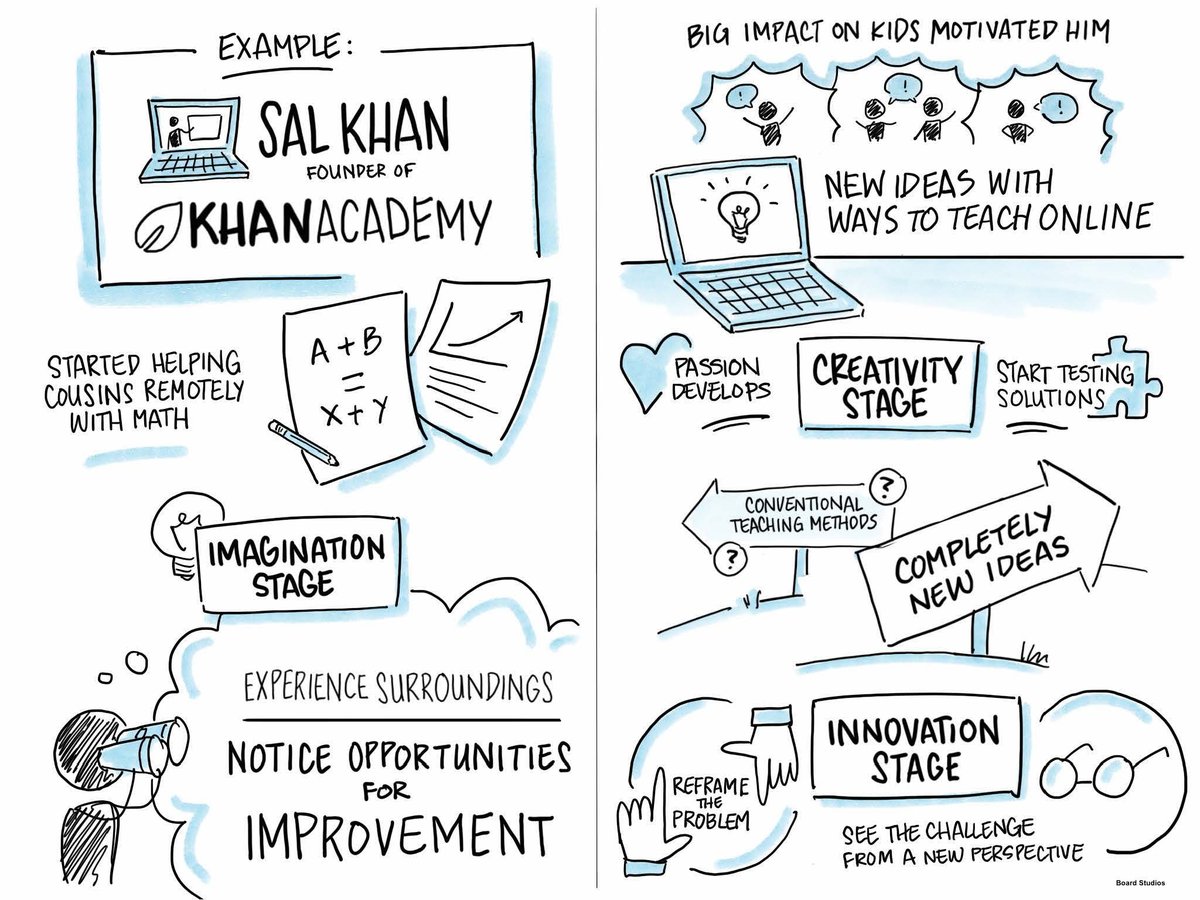 EXAMPLE:
SAL KHAN
FOUNDER OF
KHANACADEMY
STARTED HELPING
COUSINS REMOTELY
WITH MATH
A + B
=
X + Y
IMAGINATION
STAGE
EXPERIENCE SURROUNDINGS
NOTICE OPPORTUNITIES
FOR
IMPROVEMENT
BIG IMPACT ON KIDS MOTIVATED HIM
!
!
!
NEW IDEAS WITH
WAYS TO TEACH ONLINE
PASSION
DEVELOPS
CREATIVITY
STAGE
START TESTING
SOLUTIONS
?
CONVENTIONAL
TEACHING METHODS
?
COMPLETELY
NEW IDEAS
REFRAME
THE
PROBLEM
INNOVATION
STAGE
SEE THE CHALLENGE
FROM A NEW PERSPECTIVE
Board Studios